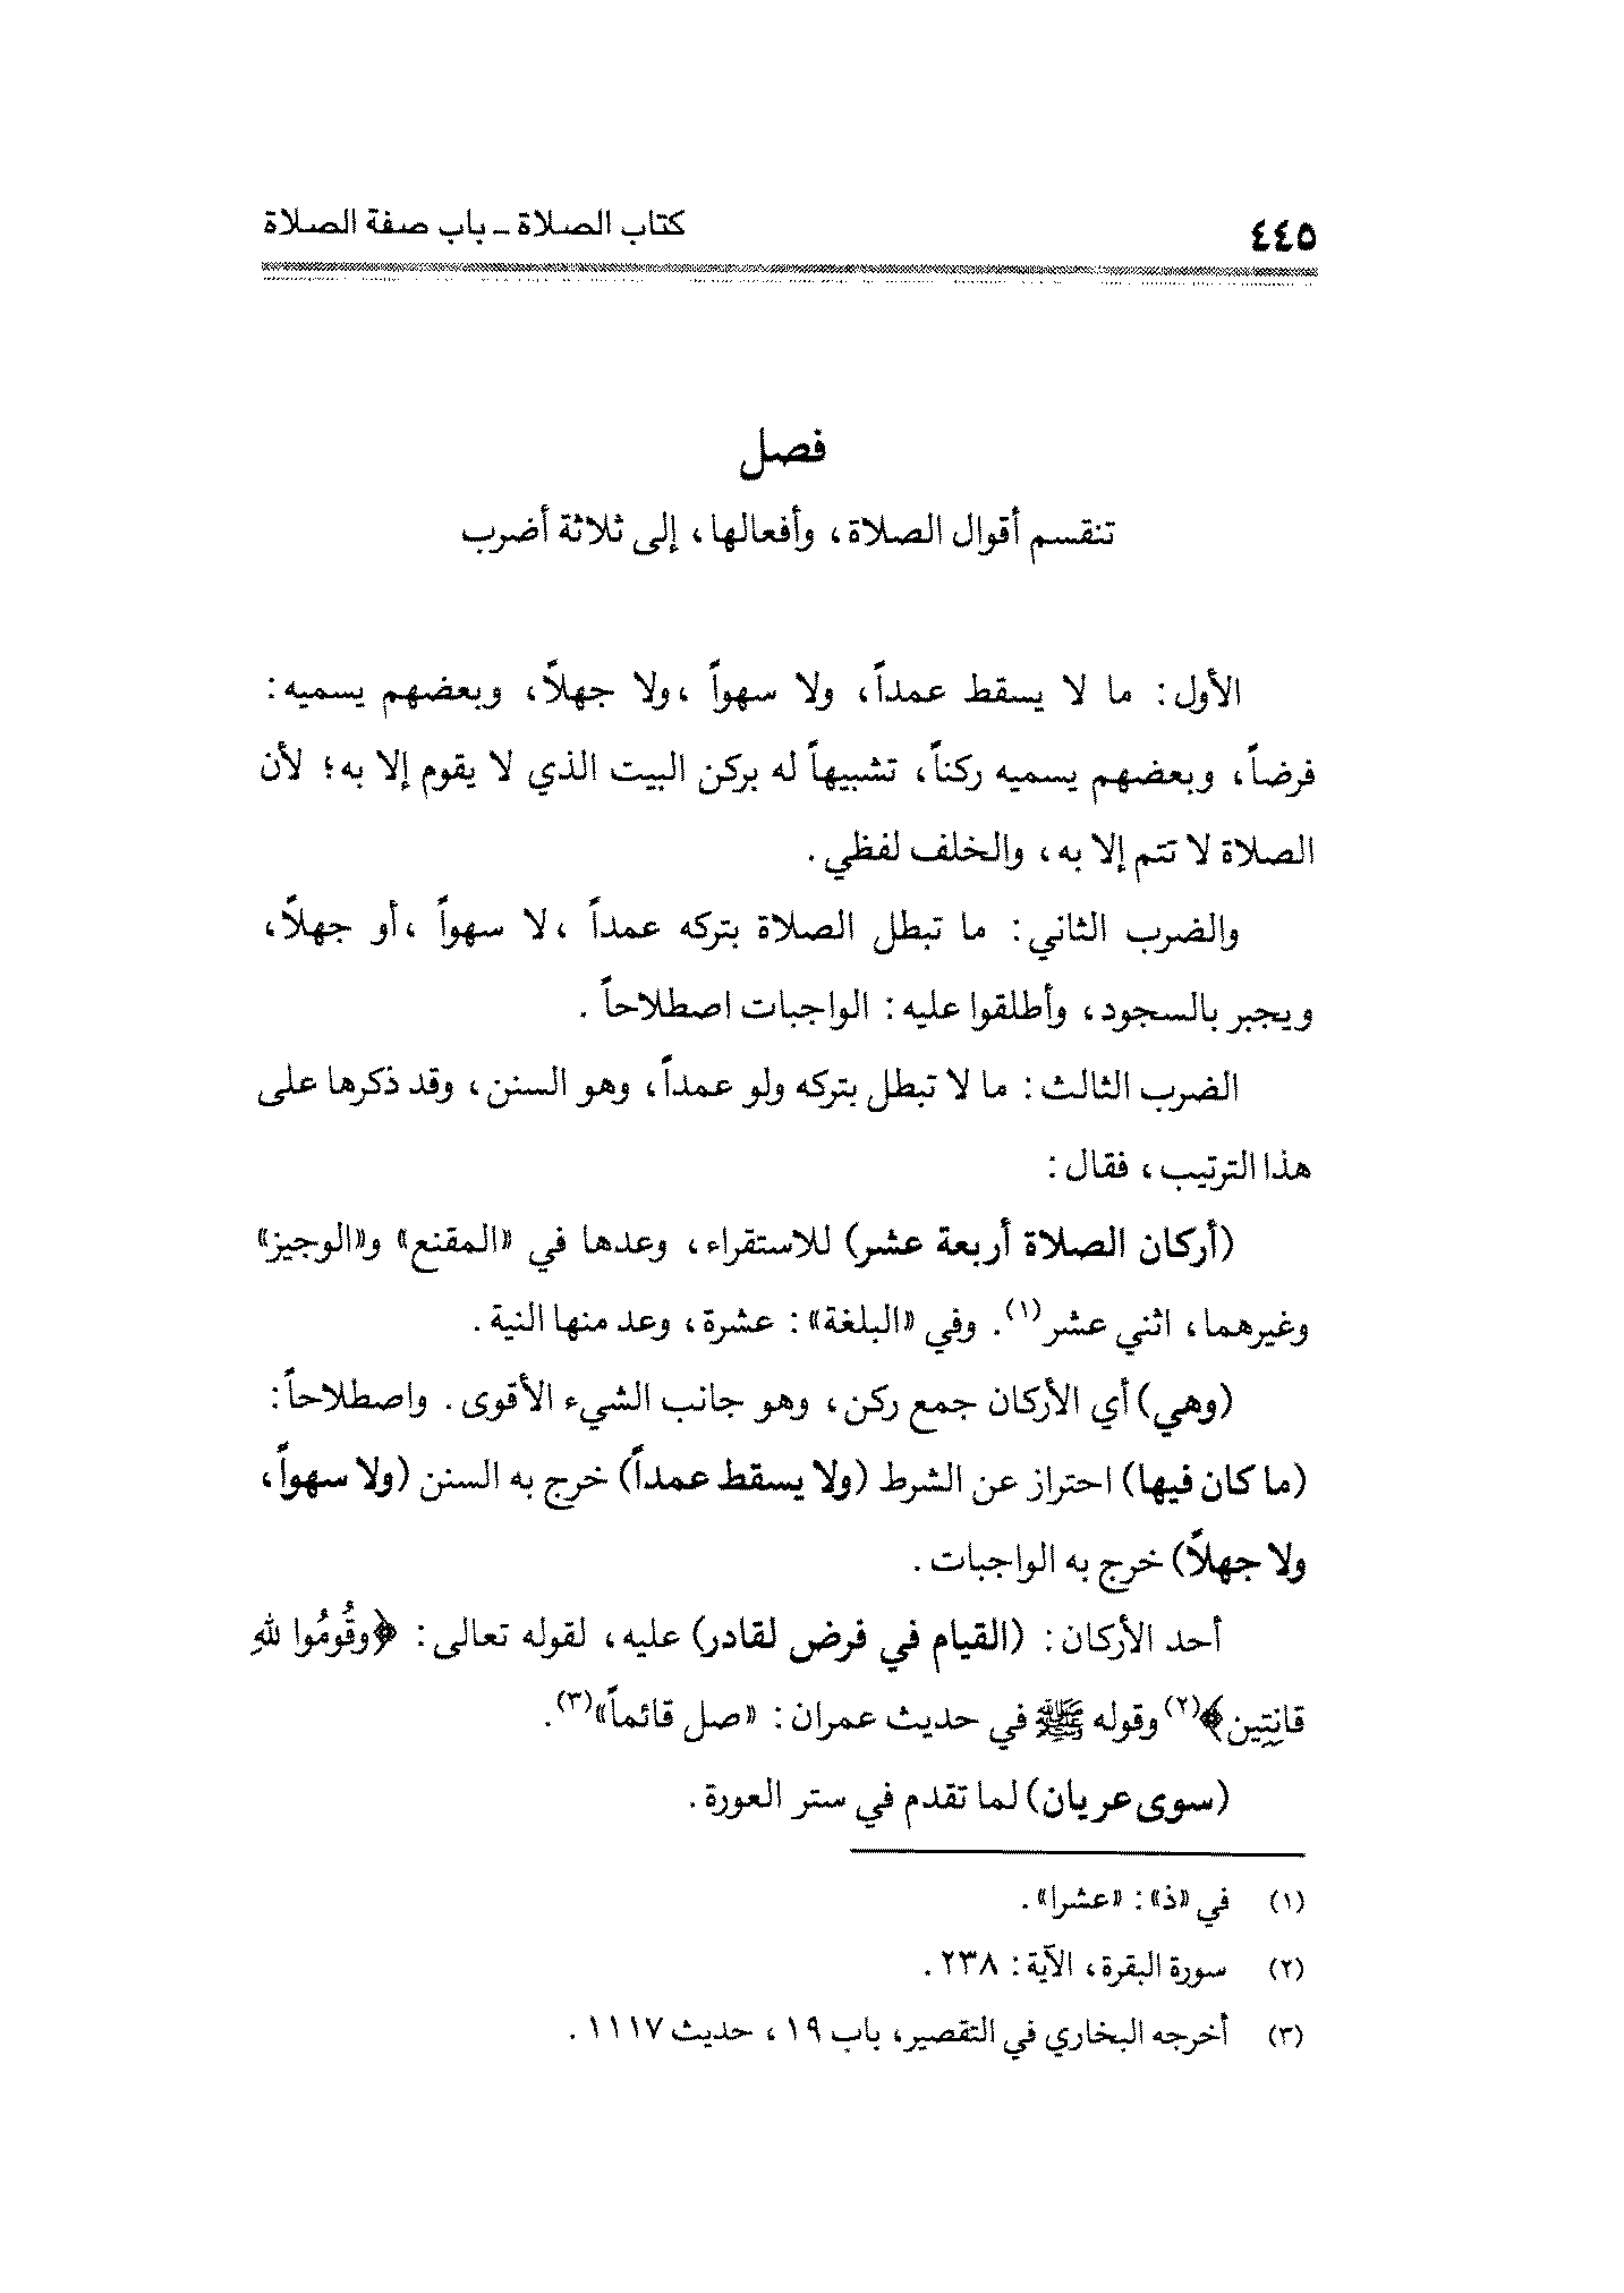 ٤٤٥
كتاب الصلاة ـ باب صفة الصلاة
فصل
تنقسم أقوال الصلاة، وأفعالها، إلى ثلاثة أضرب
الأول: ما لا يسقط عمداً، ولا سهواً ،ولا جهلاً، وبعضهم يسميه:
فرضاً، وبعضهم يسميه ركناً، تشبيهاً له بركن البيت الذي لا يقوم إلا به؛ لأن
الصلاة لا تتم إلا به، والخلف لفظي.
والضرب الثاني: ما تبطل الصلاة بتركه عمداً ،لا سهواً ،أو جهلاً،
ويجبر بالسجود، وأطلقوا عليه: الواجبات اصطلاحاً.
الضرب الثالث: ما لا تبطل بتركه ولو عمداً، وهو السنن، وقد ذكرها على
هذا الترتيب، فقال:
(أركان الصلاة أربعة عشر) للاستقراء، وعدها في «المقنع» و«الوجيز»
وغيرهما، اثني عشر(١). وفي «البلغة»: عشرة، وعد منها النية.
(وهي) أي الأركان جمع ركن، وهو جانب الشيء الأقوى. واصطلاحاً:
(ما كان فيها) احتراز عن الشرط (ولا يسقط عمداً) خرج به السنن (ولا سهواً،
ولا جهلاً) خرج به الواجبات.
أحد الأركان: (القيام في فرض لقادر) عليه، لقوله تعالى: ﴿وقُومُوا للهِ
قانِتِين﴾(٢) وقوله ﷺ في حديث عمران: «صل قائماً»(٣).
(سوى عريان) لما تقدم في ستر العورة.
(١) في «ذ»: «عشرا».
(٢) سورة البقرة، الآية: ٢٣٨.
(٣) أخرجه البخاري في التقصير، باب ١٩، حديث ١١١٧.